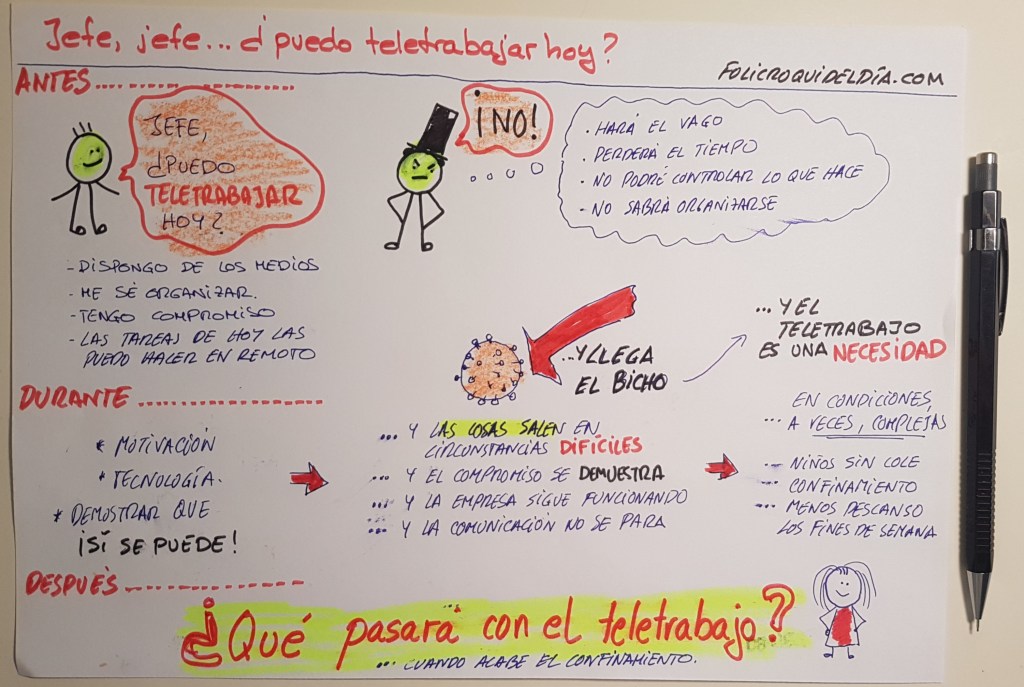 Jefe, jefe... ¿puedo teletrabajar hoy?
FOLICROQUIDELDÍA.COM
ANTES..................
JEFE,
¿PUEDO
TELETRABAJAR
HOY?
¡NO!
. HARÁ EL VAGO
. PERDERÁ EL TIEMPO
. NO PODRÉ CONTROLAR LO QUE HACE
- NO SABRÁ ORGANIZARSE
- DISPONGO DE LOS MEDIOS
- ME SÉ ORGANIZAR.
- TENGO COMPROMISO
- LAS TAREAS DE HOY LAS
PUEDO HACER EN REMOTO
... Y LLEGA
EL BICHO
... Y EL
TELETRABAJO
ES UNA NECESIDAD
DURANTE ..................
* MOTIVACIÓN
* TECNOLOGÍA.
* DEMOSTRAR QUE
¡SÍ SE PUEDE!
... Y LAS COSAS SALEN EN
CIRCUNSTANCIAS DIFÍCILES
... Y EL COMPROMISO SE DEMUESTRA
... Y LA EMPRESA SIGUE FUNCIONANDO
... Y LA COMUNICACIÓN NO SE PARA
EN CONDICIONES,
... A VECES, COMPLEJAS
... NIÑOS SIN COLE
... CONFINAMIENTO
... MENOS DESCANSO
LOS FINES DE SEMANA
DESPUÉS ..................
¿Qué pasará con el teletrabajo?
... CUANDO ACABE EL CONFINAMIENTO.